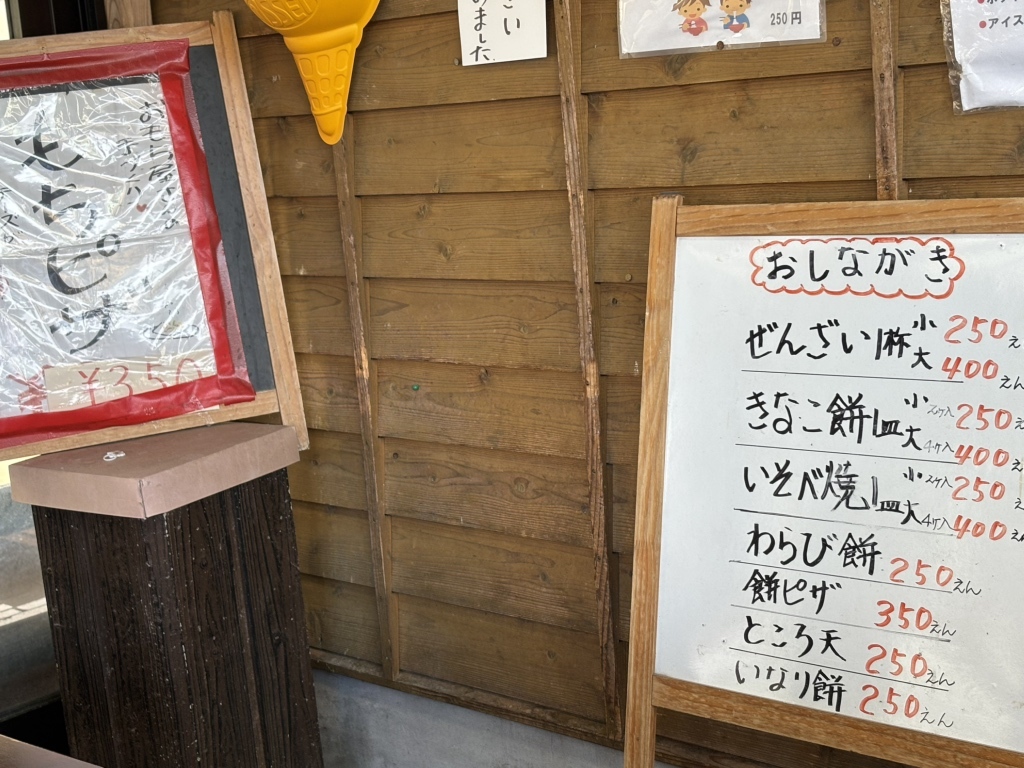 もちピザ
¥350
さい
めました
250円
アイス
おしながき
ぜんざい1杯 小 250え
大 400えん
きなこ餅1皿 小 2ケ入 250え
大 4ケ入 400えん
いそべ焼1皿 小 2ケ入 250え
大 4ケ入 400えん
わらび餅 250えん
餅ピザ 350えん
ところ天 250えん
いなり餅 250えん